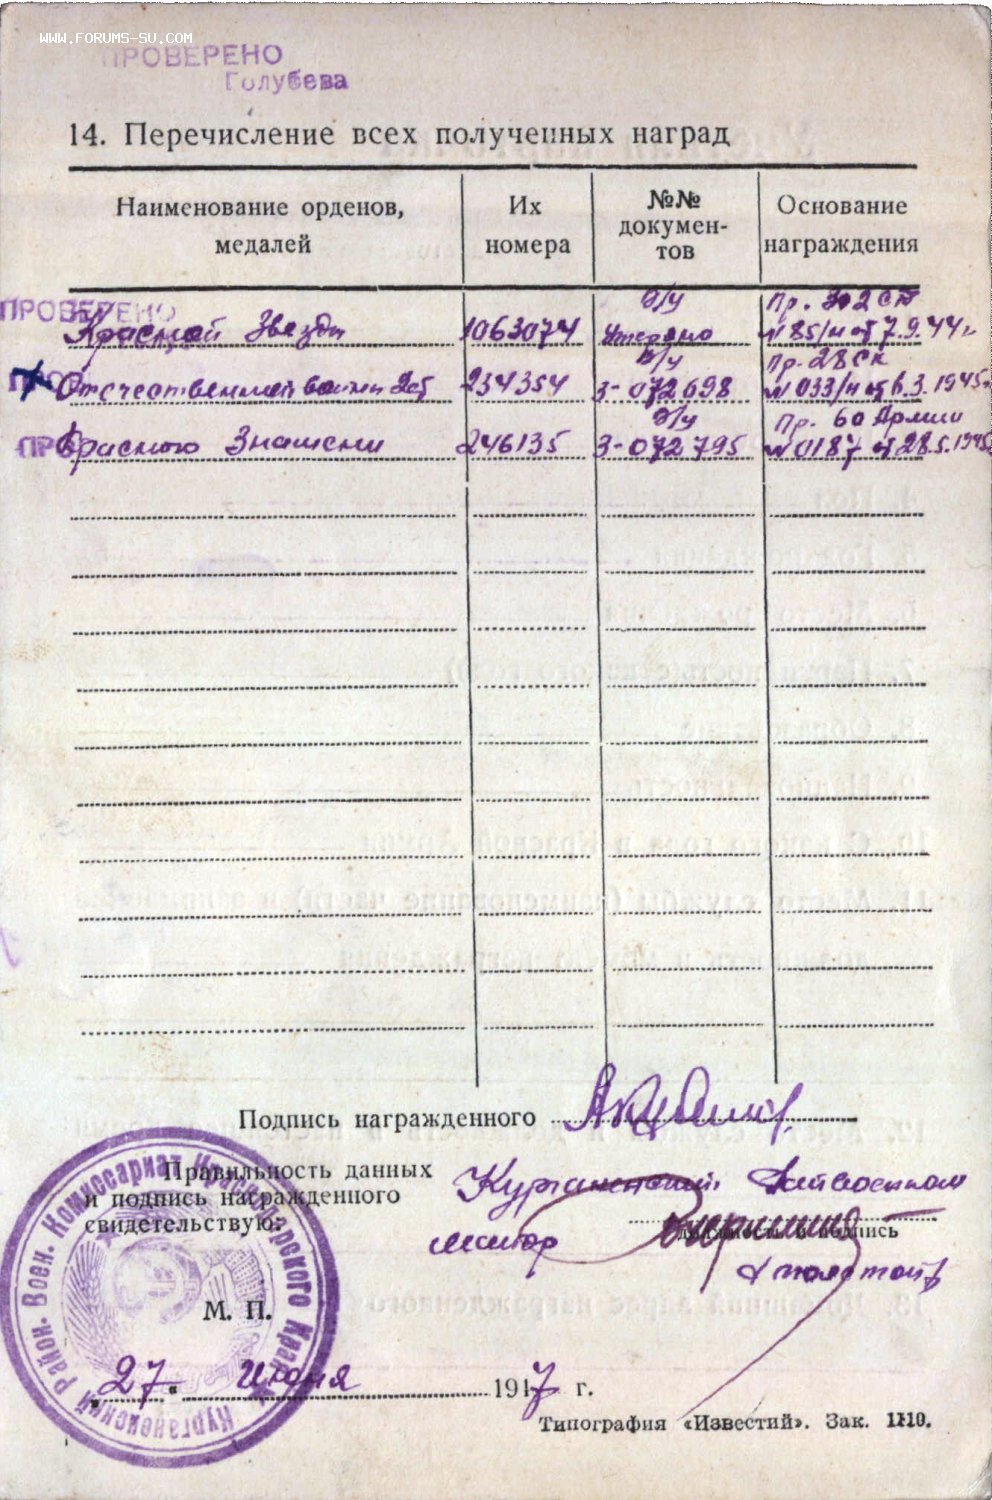 WWW.FORUMS-SU.COM
ПРОВЕРЕНО
Голубева
14. Перечисление всех полученных наград
Наименование орденов, медалей
Их номера
№№ докумен-тов
Основание награждения
ПРОВЕРЕНО
Красной Звезды 1063074 Утеряно Пр. 302 СД № 85/н от 7.9.44г
Отечественной войны 2ст 234354 З-072698 Пр. 28 СК № 033/н от 6.3.1945
Красного Знамени 246135 З-072795 Пр. 60 Армии № 0187 от 28.5.1945
Подпись награжденного
Правильность данных
и подпись награжденного
свидетельствую:
Курганенский Райвоенком
майор
должность и подпись
М. П.
„27“ Июня 1947 г.
Курганенский Район. Воен. Комиссариат Краснодарского Края
Типография «Известий». Зак. 1110.